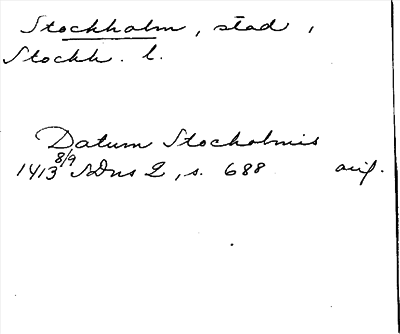 Stockholm, stad,
Stockh. l.
Datum Stocholmis
1413 8/9 SDns 2, s. 688 orig.